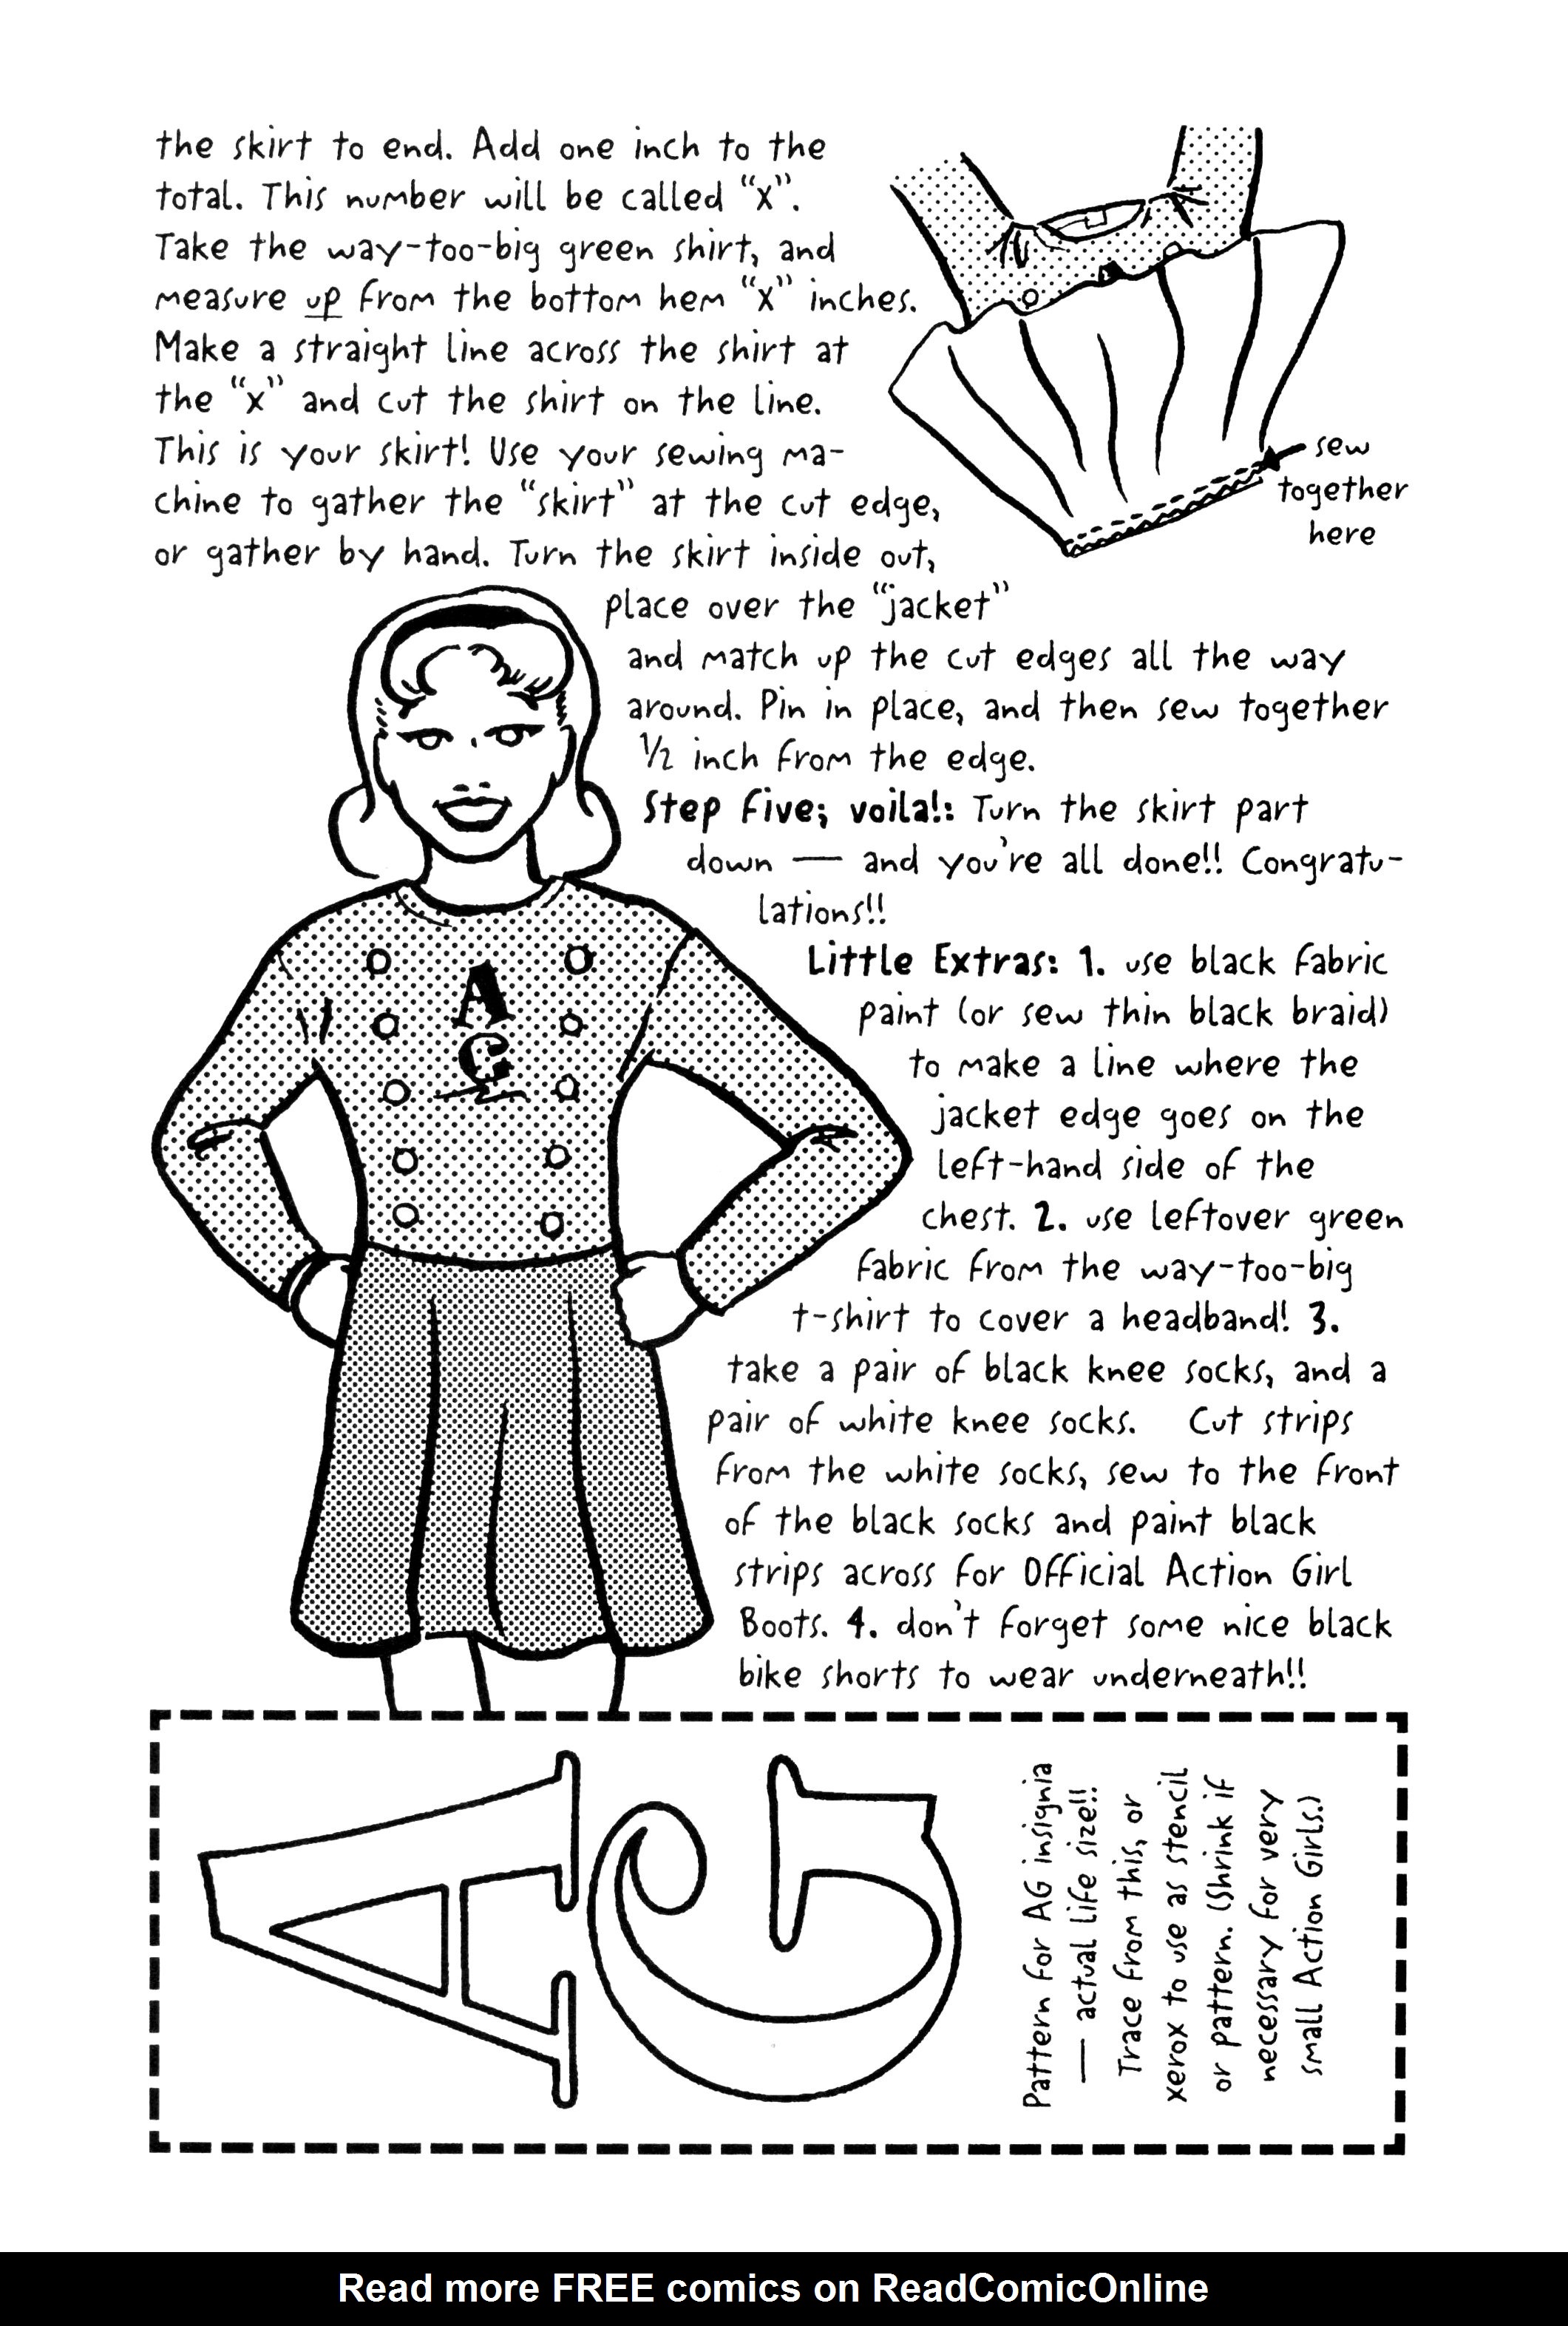 the skirt to end. Add one inch to the
total. This number will be called "x".
Take the way-too-big green shirt, and
measure up from the bottom hem "x" inches.
Make a straight line across the shirt at
the "x" and cut the shirt on the line.
This is your skirt! Use your sewing ma-
chine to gather the "skirt" at the cut edge,
or gather by hand. Turn the skirt inside out,
place over the "jacket"
and match up the cut edges all the way
around. Pin in place, and then sew together
1/2 inch from the edge.
Step Five; voila!: Turn the skirt part
down — and you're all done!! Congratu-
lations!!
Little Extras: 1. use black fabric
paint (or sew thin black braid)
to make a line where the
jacket edge goes on the
left-hand side of the
chest. 2. use leftover green
fabric from the way-too-big
t-shirt to cover a headband! 3.
take a pair of black knee socks, and a
pair of white knee socks. Cut strips
from the white socks, sew to the front
of the black socks and paint black
strips across for Official Action Girl
Boots. 4. don't forget some nice black
bike shorts to wear underneath!!
sew
together
here
A
G
AG
Pattern for AG insignia
— actual life size!!
Trace from this, or
xerox to use as stencil
or pattern. (Shrink if
necessary for very
small Action Girls.)
Read more FREE comics on ReadComicOnline